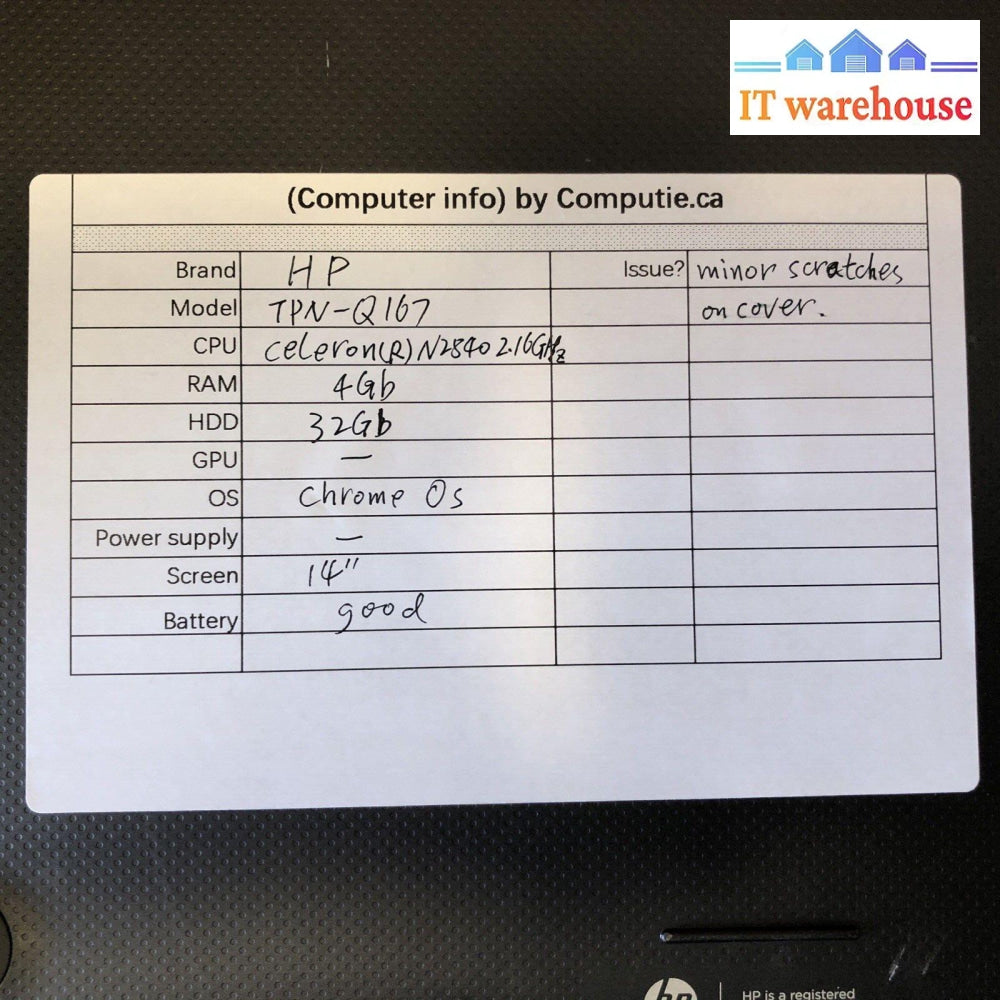 IT warehouse
(Computer info) by Computie.ca
Brand HP Issue? minor scratches
Model TPN-Q167 on cover.
CPU Celeron(R) N2840 2.16GHz
RAM 4Gb
HDD 32Gb
GPU —
OS Chrome Os
Power supply —
Screen 14"
Battery good
hp HP is a registered